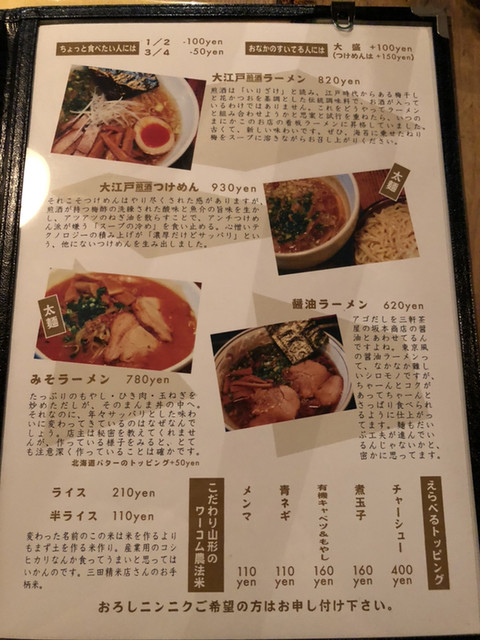 ちょっと食べたい人には 1/2 -100yen
3/4 -50yen
おなかのすいてる人には 大盛 +100yen
(つけめんは +150yen)
大江戸煎酒ラーメン 820yen
煎酒は「いりざけ」と読み。江戸時代からある梅干し
と昆かつおを基調とした伝統調味料で、お酒が入って
いるわけではありません。これをどうやってラーメン
と組み合わせようかと思案と試行を重ねたら、いつの
まにかこのお店の看板ラーメンに昇格していました。
古くて、新しい味わいです。ぜひ、海苔に乗せたねり
梅をスープに溶きながらお召し上がりください。
大江戸煎酒つけめん 930yen
それこそつけめんはやり尽くされた感がありますが、
煎酒が持つ梅酢の洗練された酸味と魚介の旨味を生か
し、アツアツのねぎ油を散らすことで、アンチつけめ
ん派が嫌う「スープの冷め」を食い止める。心憎いテ
クノロジーの積み上げが「濃厚だけどサッパリ」とい
う、他にないつけめんを生み出しました。
太麺
醤油ラーメン 620yen
アゴだしを三軒茶
屋の坂本商店の醤
油とあわせてるん
ですよね。東京風
の醤油ラーメンっ
て、なかなか難し
いシロモノですが、
ちゃーんとコクが
あってちゃーんと
さっぱり食べられ
るように仕上がっ
てます。麺もだい
ぶ工夫が進んでい
るんじゃないかと、
密かに思ってます。
太麺
みそラーメン 780yen
たっぷりのもやし・ひき肉・玉ねぎを
炒めただしが、そのまんま丼の中へ。
それなのに、年々サッパリとした味わ
いに変わってきているのはなぜなんで
しょう。店主は秘密を教えてくれませ
んが、作っている様子をみると、とて
も注意深く作っていることは確かです。
北海道バターのトッピング+50yen
ライス 210yen
半ライス 110yen
変わった名前のこの米は米を作るより
もまず土を作る米作り。産業用のコシ
ヒカリなんか食ってうまいと思っては
いかんのです。三田精米店さんのお手
柄米。
こだわり山形の
ワーコム農法米
えらべるトッピング
チャーシュー 400yen
煮玉子 160yen
有機キャベツ&もやし 160yen
青ネギ 110yen
メンマ 110yen
おろしニンニクご希望の方はお申し付け下さい。